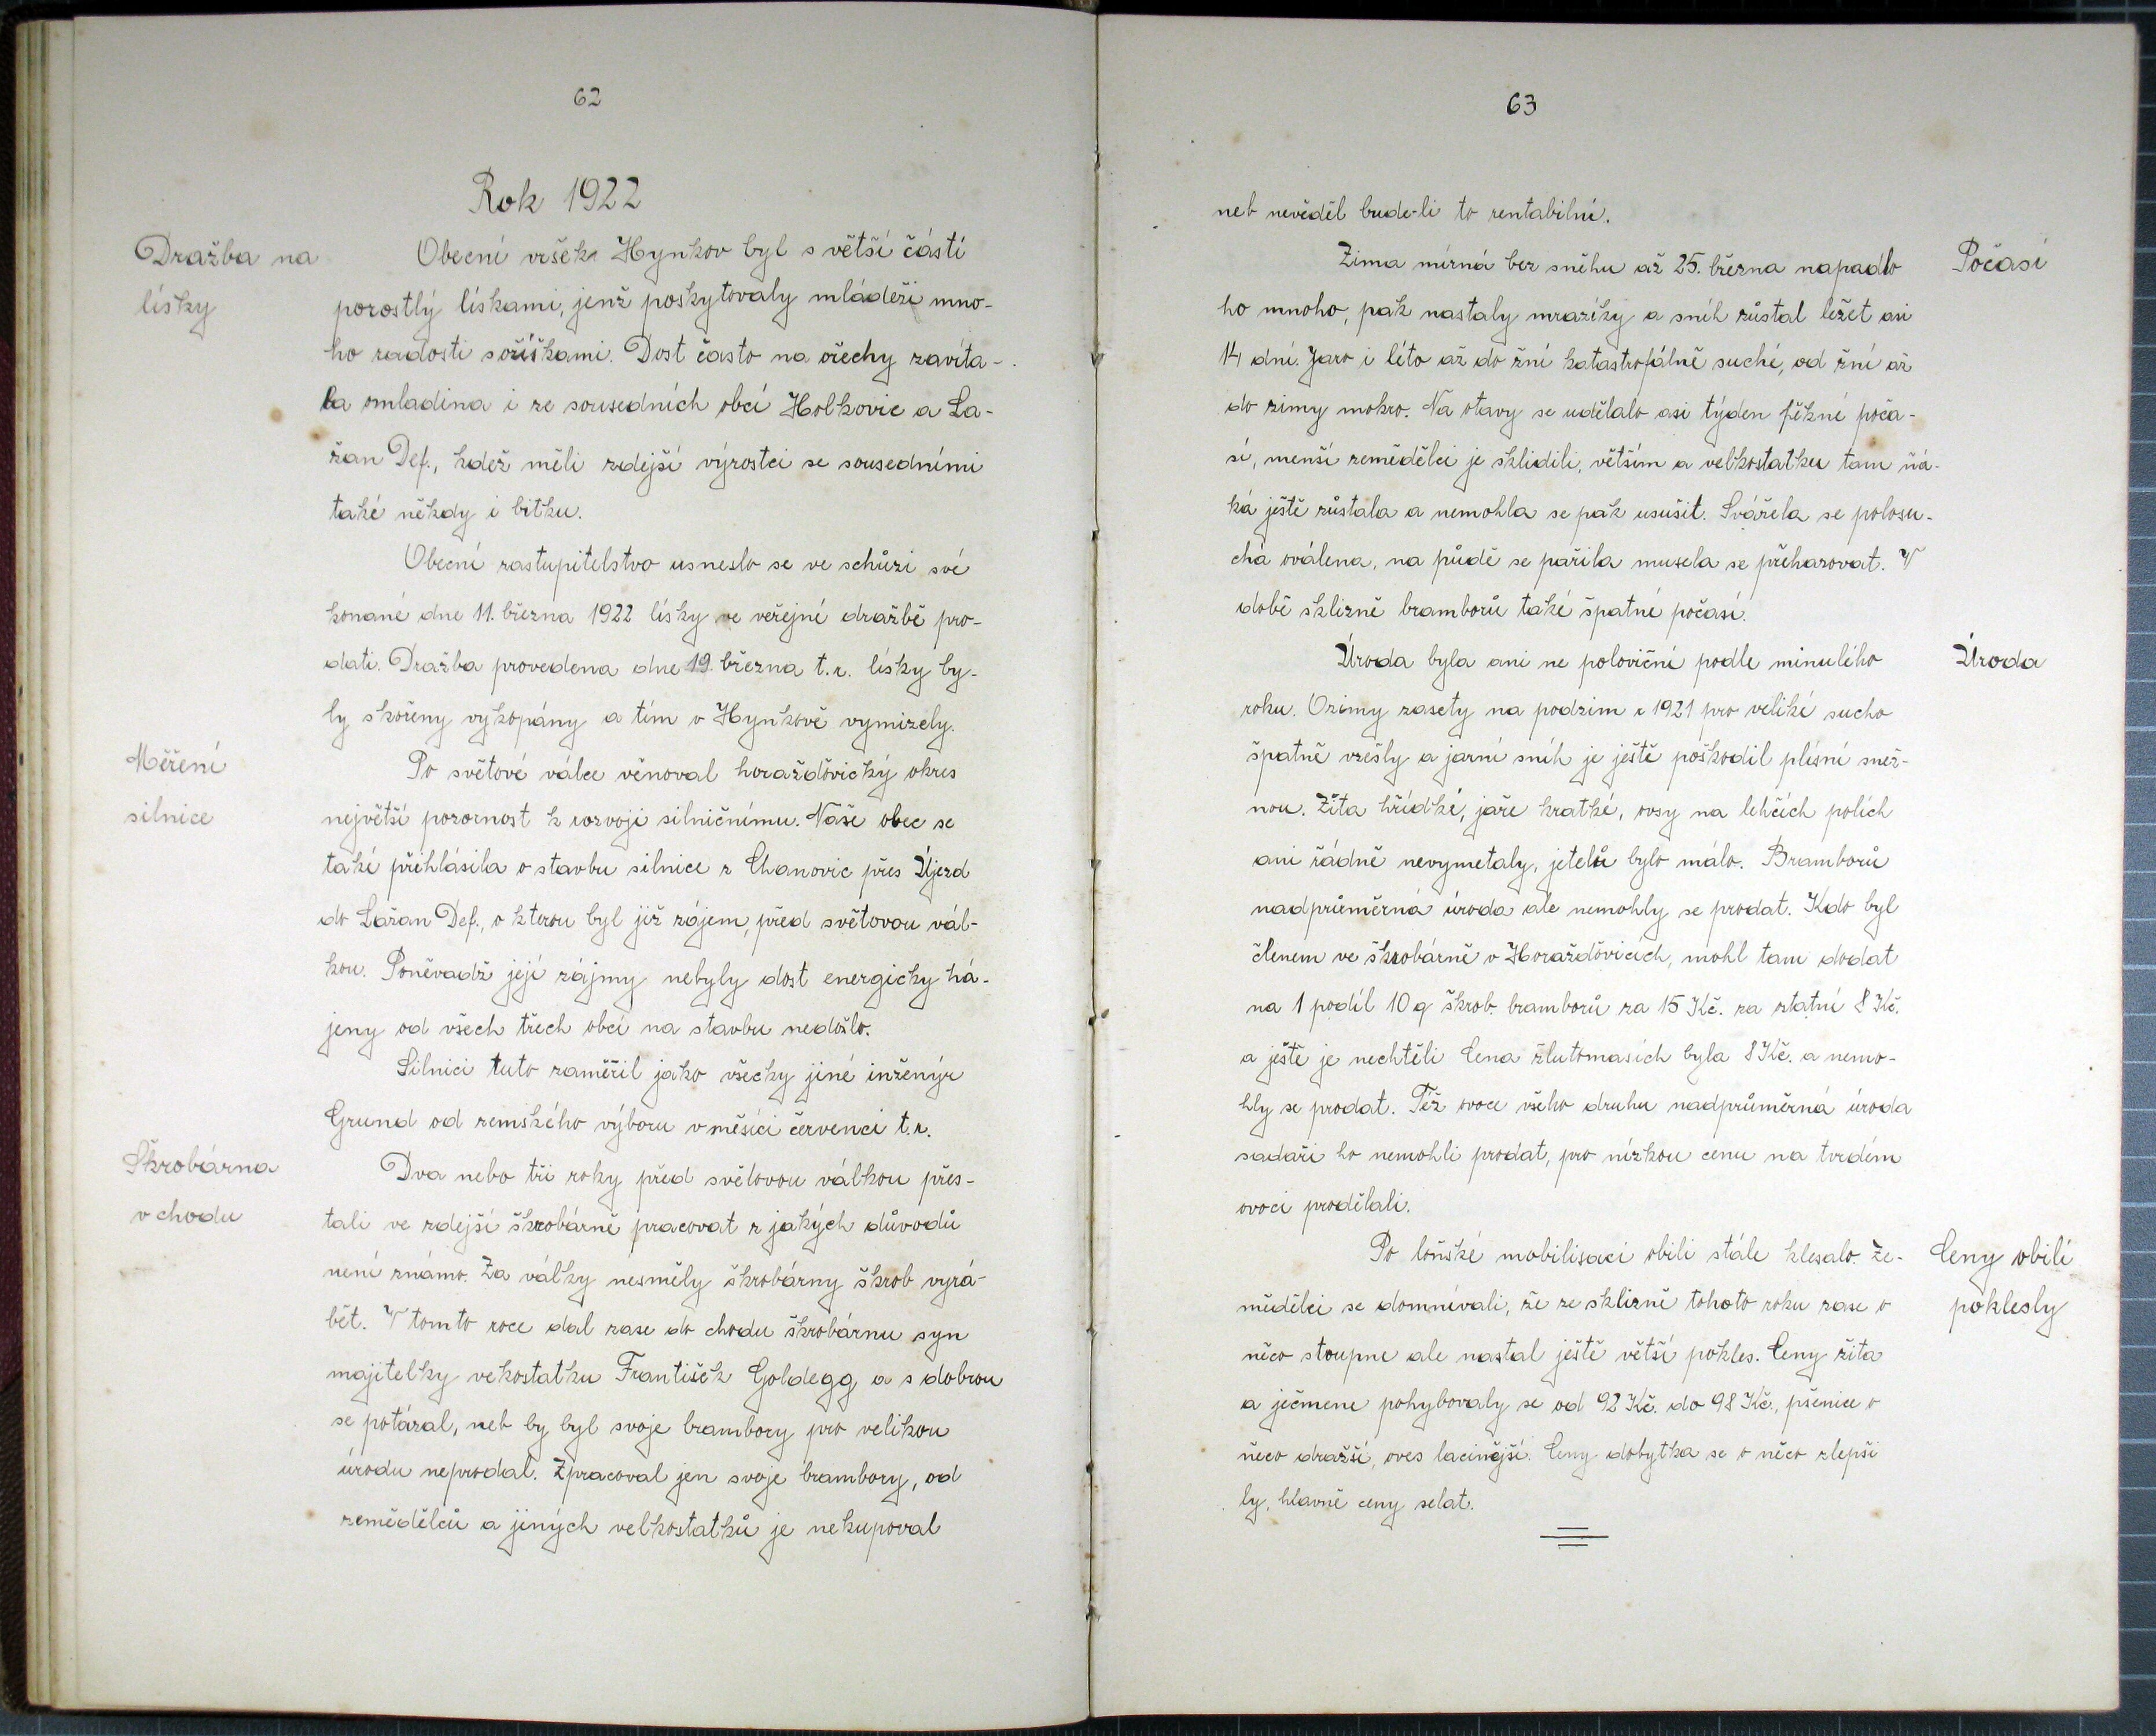 62
Rok 1922
Dražba na
lísky
Obecní vršek Hynkov byl s větší částí
porostlý lískami, jenž poskytovaly mládeži mno-
ho radosti s oříškami. Dost často na ořechy zavíta-
la omladina i ze sousedních obcí Holkovic a La-
žan Def., kdež měli zdejší výrostci se sousedními
také někdy i bitku.
Obecní zastupitelstvo usneslo se ve schůzi své
konané dne 11. března 1922 lísky ve veřejné dražbě pro-
dati. Dražba provedena dne 19. března t.r. lísky by-
ly skořeny vykopány a tím v Hynkově vymizely.
Měření
silnice
Po světové válce věnoval horažďovický okres
největší pozornost k rozvoji silničnímu. Naše obec se
také přihlásila o stavbu silnice z Chanovic přes Újezd
do Lažan Def., o kterou byl již zájem, před světovou vál-
kou. Poněvadž její zájmy nebyly dost energicky há-
jeny od všech třech obcí na stavbu nedošlo.
Silnici tuto zaměřil jako všecky jiné inženýr
Grund od zemského výboru v měsíci červenci t.r.
Škrobárna
v chodu
Dva nebo tři roky před světovou válkou přes-
tali ve zdejší škrobárně pracovat z jakých důvodů
není známo. Za války nesměly škrobárny škrob vyrá-
bět. V tomto roce dal zase do chodu škrobárnu syn
majitelky vekostatku František Goldegg a s dobrou
se potázal, neb by byl svoje brambory pro velikou
úrodu neprodal. Zpracoval jen svoje brambory, od
zemědělců a jiných velkostatků je nekupoval
63
neb nevěděl bude-li to rentabilní.
Počasí
Zima mírná bez sněhu až 25. března napadlo
ho mnoho, pak nastaly mrazíky a sníh zůstal ležet asi
14 dní. Jaro i léto až do žní katastrofálně suché, od žní až
do zimy mokro. Na otavy se udělalo asi týden pěkné poča-
sí, menší zemědělci je sklidili, větším a velkostatku tam ňá-
ká ještě zůstala a nemohla se pak usušit. Svážela se polosu-
chá oválena, na půdě se pařila musela se přeházovat. V
době sklizně bramborů také špatné počasí.
Úroda
Úroda byla ani ne poloviční podle minulého
roku. Ozimy zasety na podzim r 1921 pro veliké sucho
špatně vzešly a jarní sníh je ještě poškodil plísní sněž-
nou. Žita hřídké, jaře kratké, ovsy na lehčích polích
ani řádně nevymetaly, jetelů bylo málo. Bramborů
nadprůměrná úroda ale nemohly se prodat. Kdo byl
členem ve škrobárně v Horažďovicích, mohl tam dodat
na 1 podíl 10 q škrob. bramborů za 15 Kč. za ztatní 8 Kč.
a ještě je nechtěli Cena žlutomasích byla 8 Kč. a nemo-
hly se prodat. Též ovoce všeho druhu nadprůměrná úroda
sadaři ho nemohli prodat, pro nízkou cenu na tvrdém
ovoci prodělali.
Ceny obilí
poklesly
Po loňské mobilisaci obilí stále klesalo. Ze-
mědělci se domnívali, že ze sklizně tohoto roku zase o
něco stoupne ale nastal ještě větší pokles. Ceny žita
a ječmene pohybovaly se od 92 Kč. do 98 Kč., pšenice o
něco dražší, oves lacinější. Ceny dobytka se o něco zlepši
ly, hlavně ceny selat.